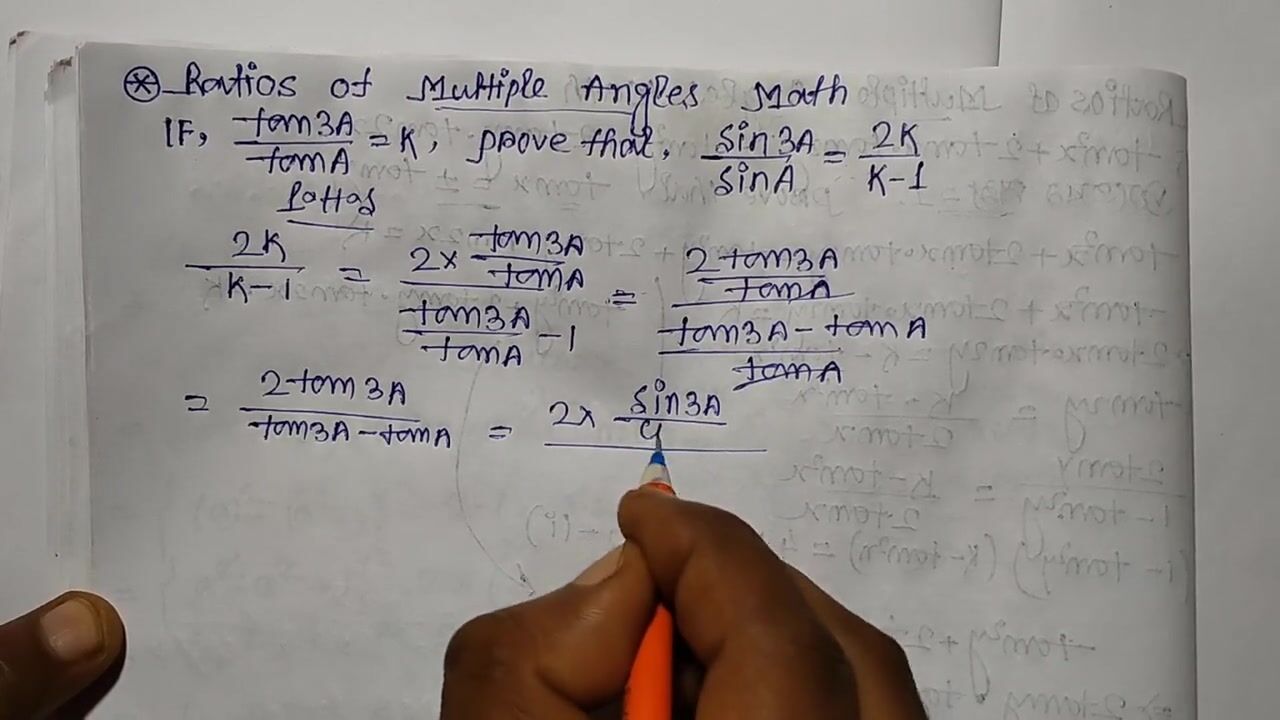 ⊛ Ratios of Multiple Angles Math
IF, tan3A/tanA = K, prove that, sin3A/sinA = 2K/K-1
2K/K-1 = 2×tan3A/tanA / tan3A/tanA -1 = 2tan3A/tanA / tan3A-tanA/tanA
= 2tan3A/tan3A-tanA = 2× sin3A/